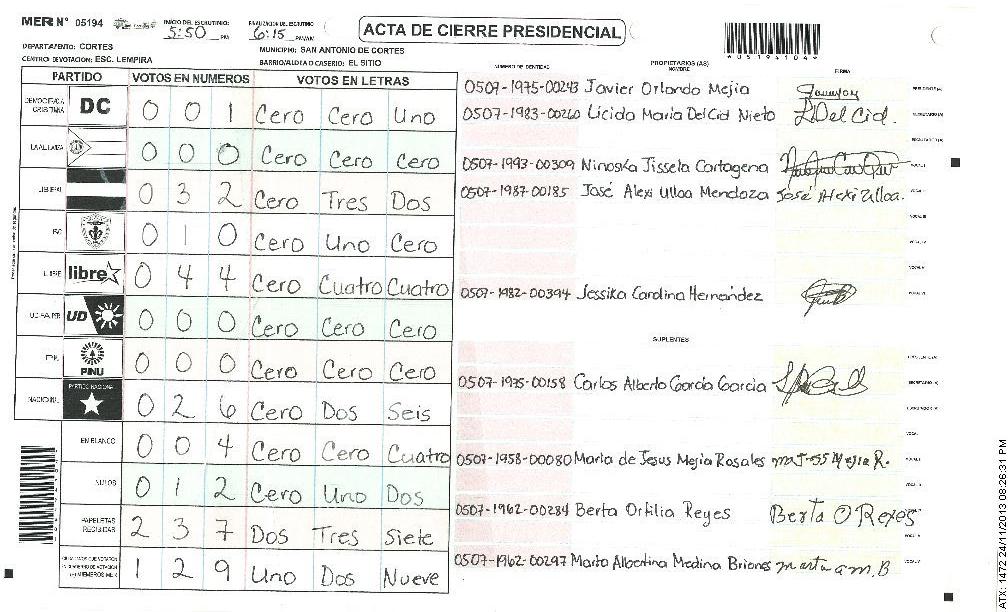 MER N° 05194
INICIO DEL ESCRUTINIO: 5:50 PM
FINALIZACION DEL ESCRUTINIO 6:15 PM/AM
ACTA DE CIERRE PRESIDENCIAL
DEPARTAMENTO: CORTES
MUNICIPIO: SAN ANTONIO DE CORTES
CENTRO DE VOTACION: ESC. LEMPIRA
BARRIO/ALDEA O CASERIO: EL SITIO
PARTIDO VOTOS EN NUMEROS VOTOS EN LETRAS
DEMOCRACIA CRISTIANA DC 0 0 1 Cero Cero Uno
LA ALIANZA 0 0 0 Cero Cero Cero
LIBERAL 0 3 2 Cero Tres Dos
0 1 0 Cero Uno Cero
LIBRE libre 0 4 4 Cero Cuatro Cuatro
UD 0 0 0 Cero Cero Cero
PINU 0 0 0 Cero Cero Cero
NACIONAL PARTIDO NACIONAL 0 2 6 Cero Dos Seis
EN BLANCO 0 0 4 Cero Cero Cuatro
NULOS 0 1 2 Cero Uno Dos
PAPELETAS RECIBIDAS 2 3 7 Dos Tres Siete
1 2 9 Uno Dos Nueve
NUMERO DE IDENTIDAD PROPIETARIOS (AS) NOMBRE FIRMA
0509-1975-00243 Javier Orlando Mejia
0507-1983-00260 Licida Maria Del Cid Nieto LDel Cid.
0507-1993-00309 Ninoska Jissela Cartagena
0507-1987-00185 José Alexi Ulloa Mendoza José Alexi Ulloa.
0507-1982-00394 Jessika Carolina Hernández
SUPLENTES
0507-1975-00158 Carlos Alberto García García
0507-1958-00080 Maria de Jesus Mejia Rosales
0507-1962-00284 Berta Orfilia Reyes Berta O Reyes
0507-1962-00297 Marta Albertina Medina Briones marta a m. B
ATX: 1472 24/11/2013 08:26:31 PM